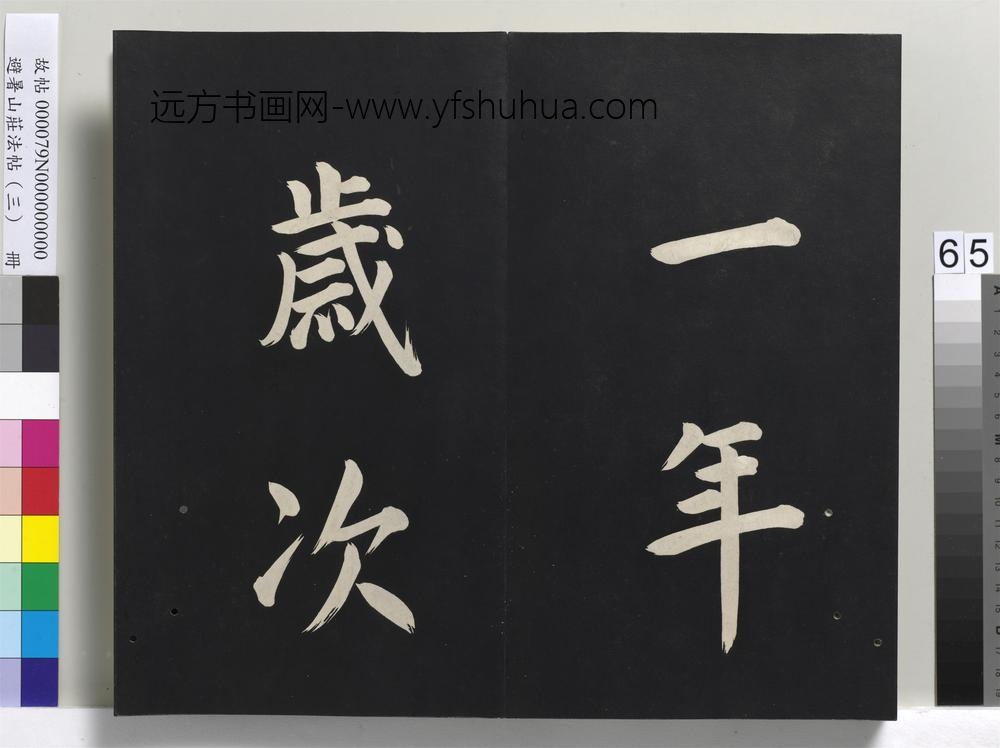 远方书画网-www.yfshuhua.com
一年
歲次
故帖 000079N000000000
避暑山莊法帖(三) 冊
65